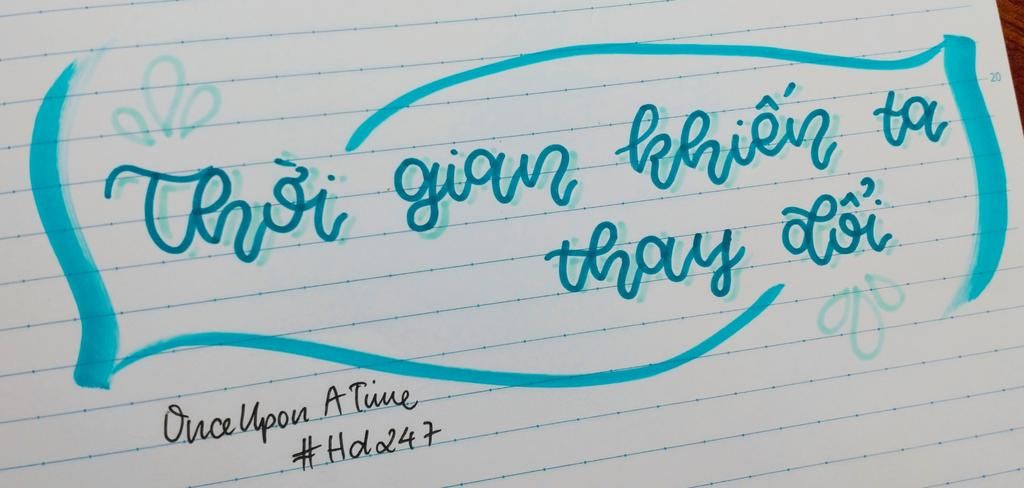 20
Thời gian khiến ta
thay đổi
OnceUpon A Time
#Hd247